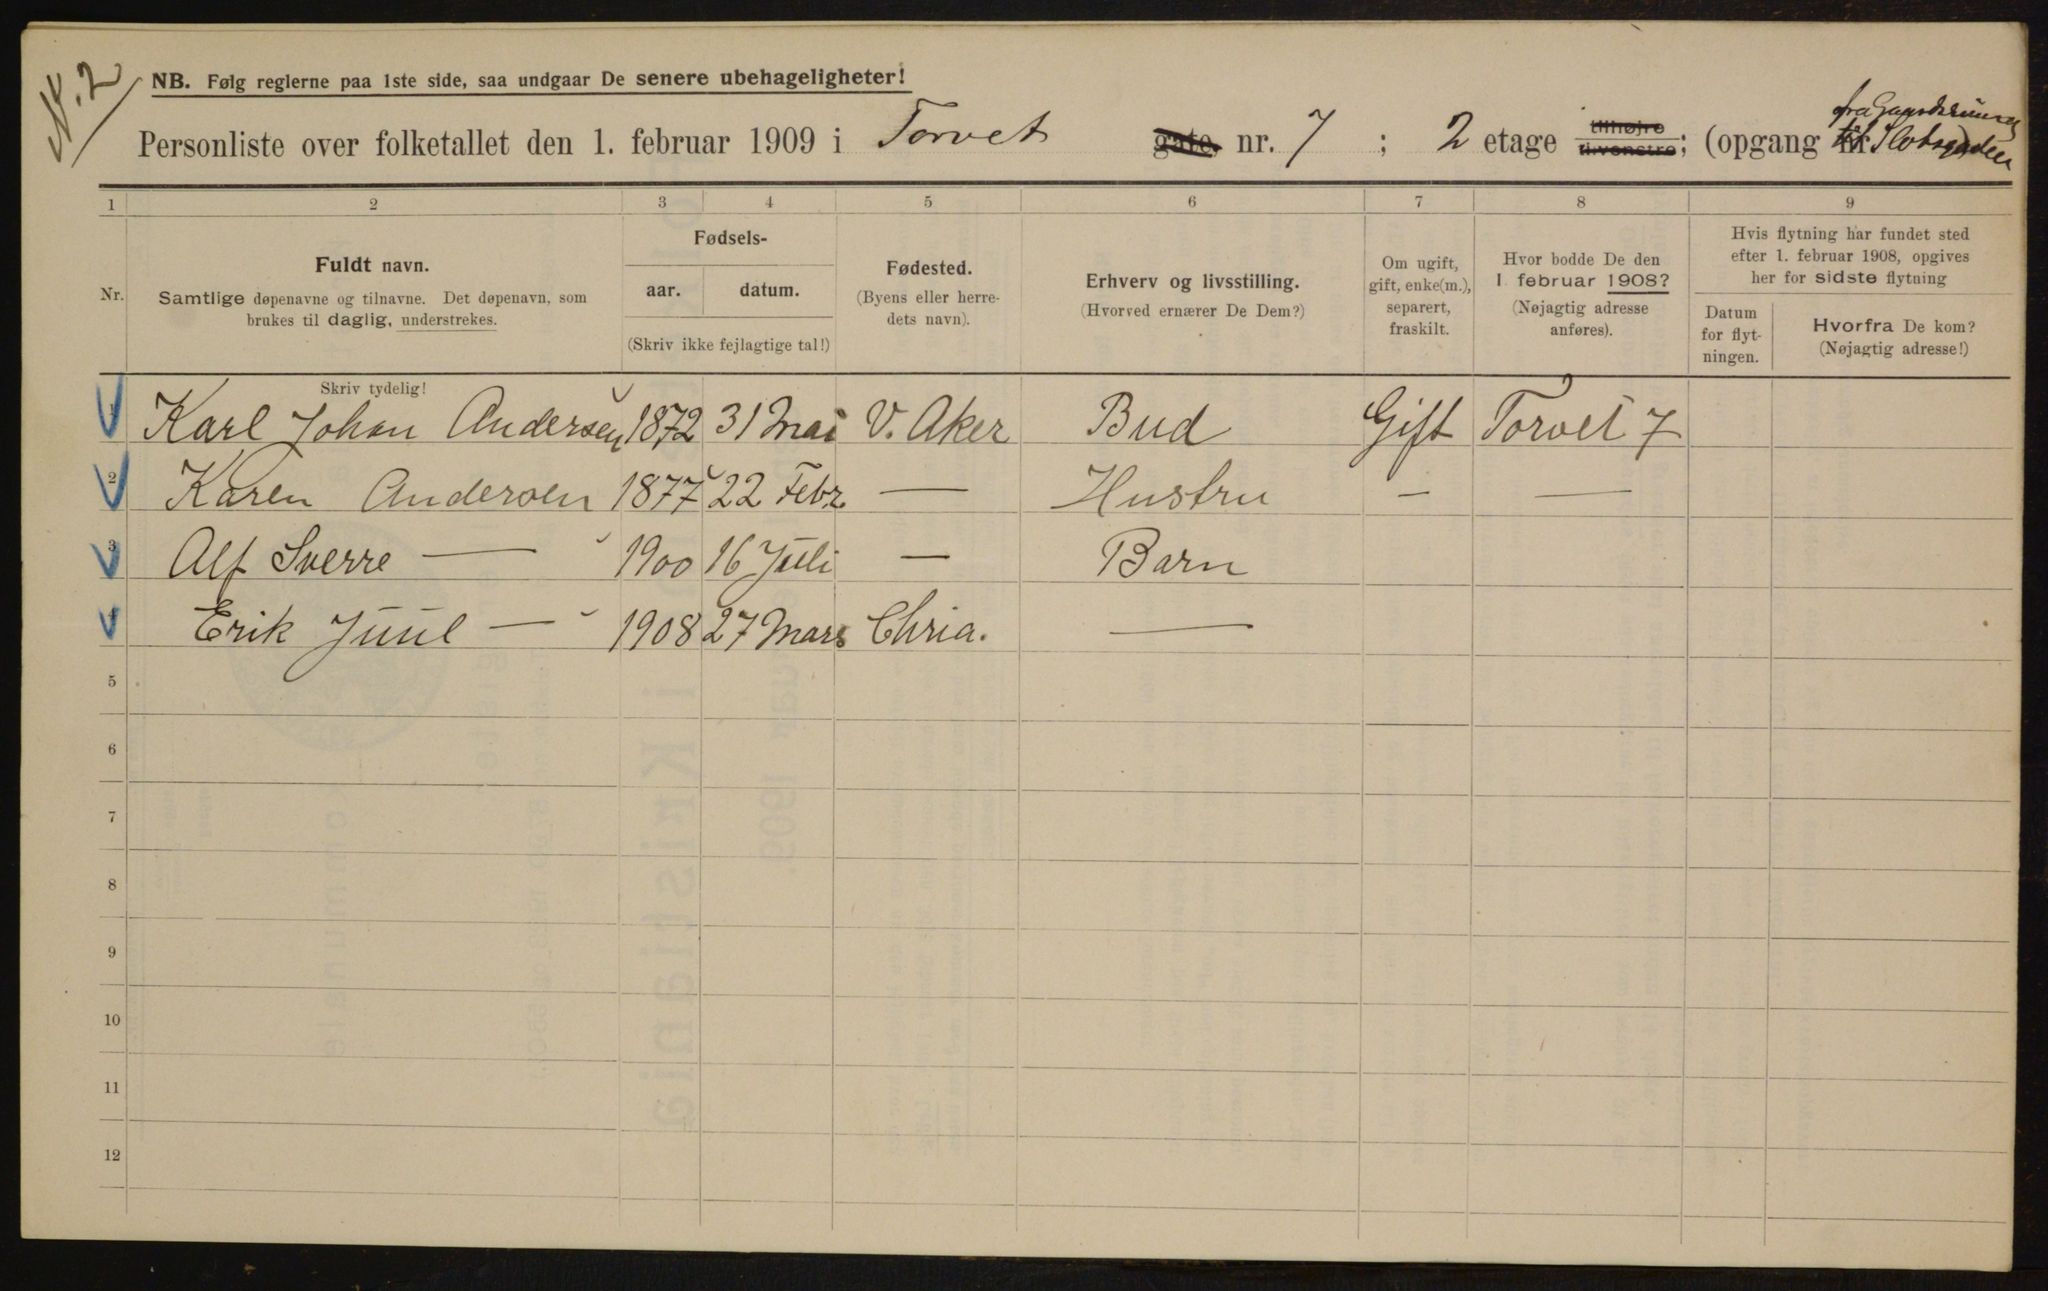 Nr. 2
NB. Følg reglerne paa 1ste side, saa undgaar De senere ubehageligheter!
Personliste over folketallet den 1. februar 1909 i Torvet gate, nr. 7 ; 2 etage tilhøjre tilvenstre; (opgang nr. fra Gaardsrummet til Slotsgaden
1 2 3 4 5 6 7 8 9
Nr.
Fuldt navn.
Samtlige døpenavne og tilnavne. Det døpenavn, som
brukes til daglig, understrekes.
Fødsels-
aar. datum.
(Skriv ikke fejlagtige tal!)
Fødested.
(Byens eller herre-
dets navn).
Erhverv og livsstilling.
(Hvorved ernærer De Dem?)
Om ugift,
gift, enke(m.),
separert,
fraskilt.
Hvor bodde De den
1 februar 1908?
(Nøjagtig adresse
anføres).
Hvis flytning har fundet sted
efter 1. februar 1908, opgives
her for sidste flytning
Datum
for flyt-
ningen.
Hvorfra De kom?
(Nøjagtig adresse!)
Skriv tydelig!
1 Karl Johan Andersen 1872 31 Mai V. Aker Bud Gift Torvet 7
2 Karen Andersen 1877 22 Febr. — Hustru — —
3 Alf Sverre — 1900 16 Juli — Barn
4 Erik Juul — 1908 27 Mars Chria. —
5
6
7
8
9
10
11
12